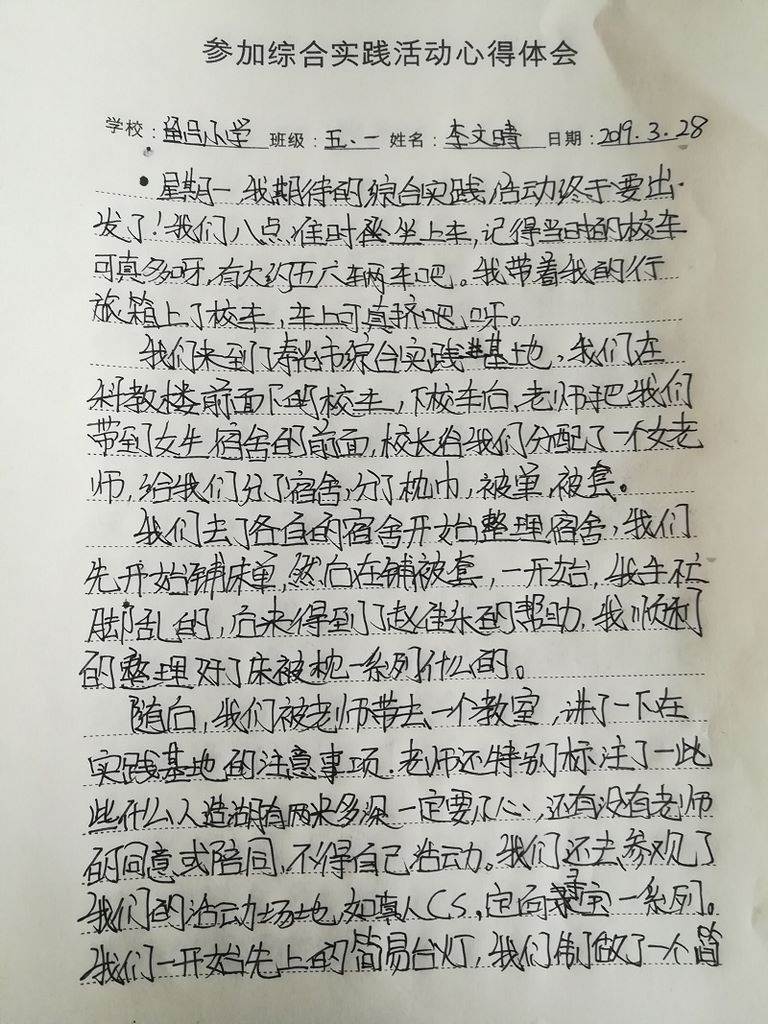 参加综合实践活动心得体会
学校：鱼马小学 班级：五、一 姓名：李文晴 日期：2019.3.28
星期一我期待的综合实践活动终于要出
发了！我们八点准时坐上车，记得当时的校车
可真多呀，有大约五六车辆车吧。我带着我的行
旅箱上了校车，车上可真挤吧呀。
我们来到了寿光市综合实践基地，我们在
科教楼前面下的校车，下校车后，老师把我们
带到女生宿舍的前面，校长给我们分配了一个女老
师，给我们分了宿舍，分了枕巾，被单，被套。
我们去了各自的宿舍开始整理宿舍，我们
先开始铺床单，然后在铺被套，一开始，我手忙
脚乱的，后来得到了赵佳乐的帮助，我顺利
的整理好了床被枕一系列什么的。
随后，我们被老师带去一个教室，讲了一下在
实践基地的注意事项。老师还特别标注了一些
些什么人造湖有两米多深一定要小心，还有没有老师
的同意或陪同，不得自己活动。我们还去参观了
我们的活动场地，如真人CS，定向寻宝一系列。
我们一开始先上的简易台灯，我们制做了一个简